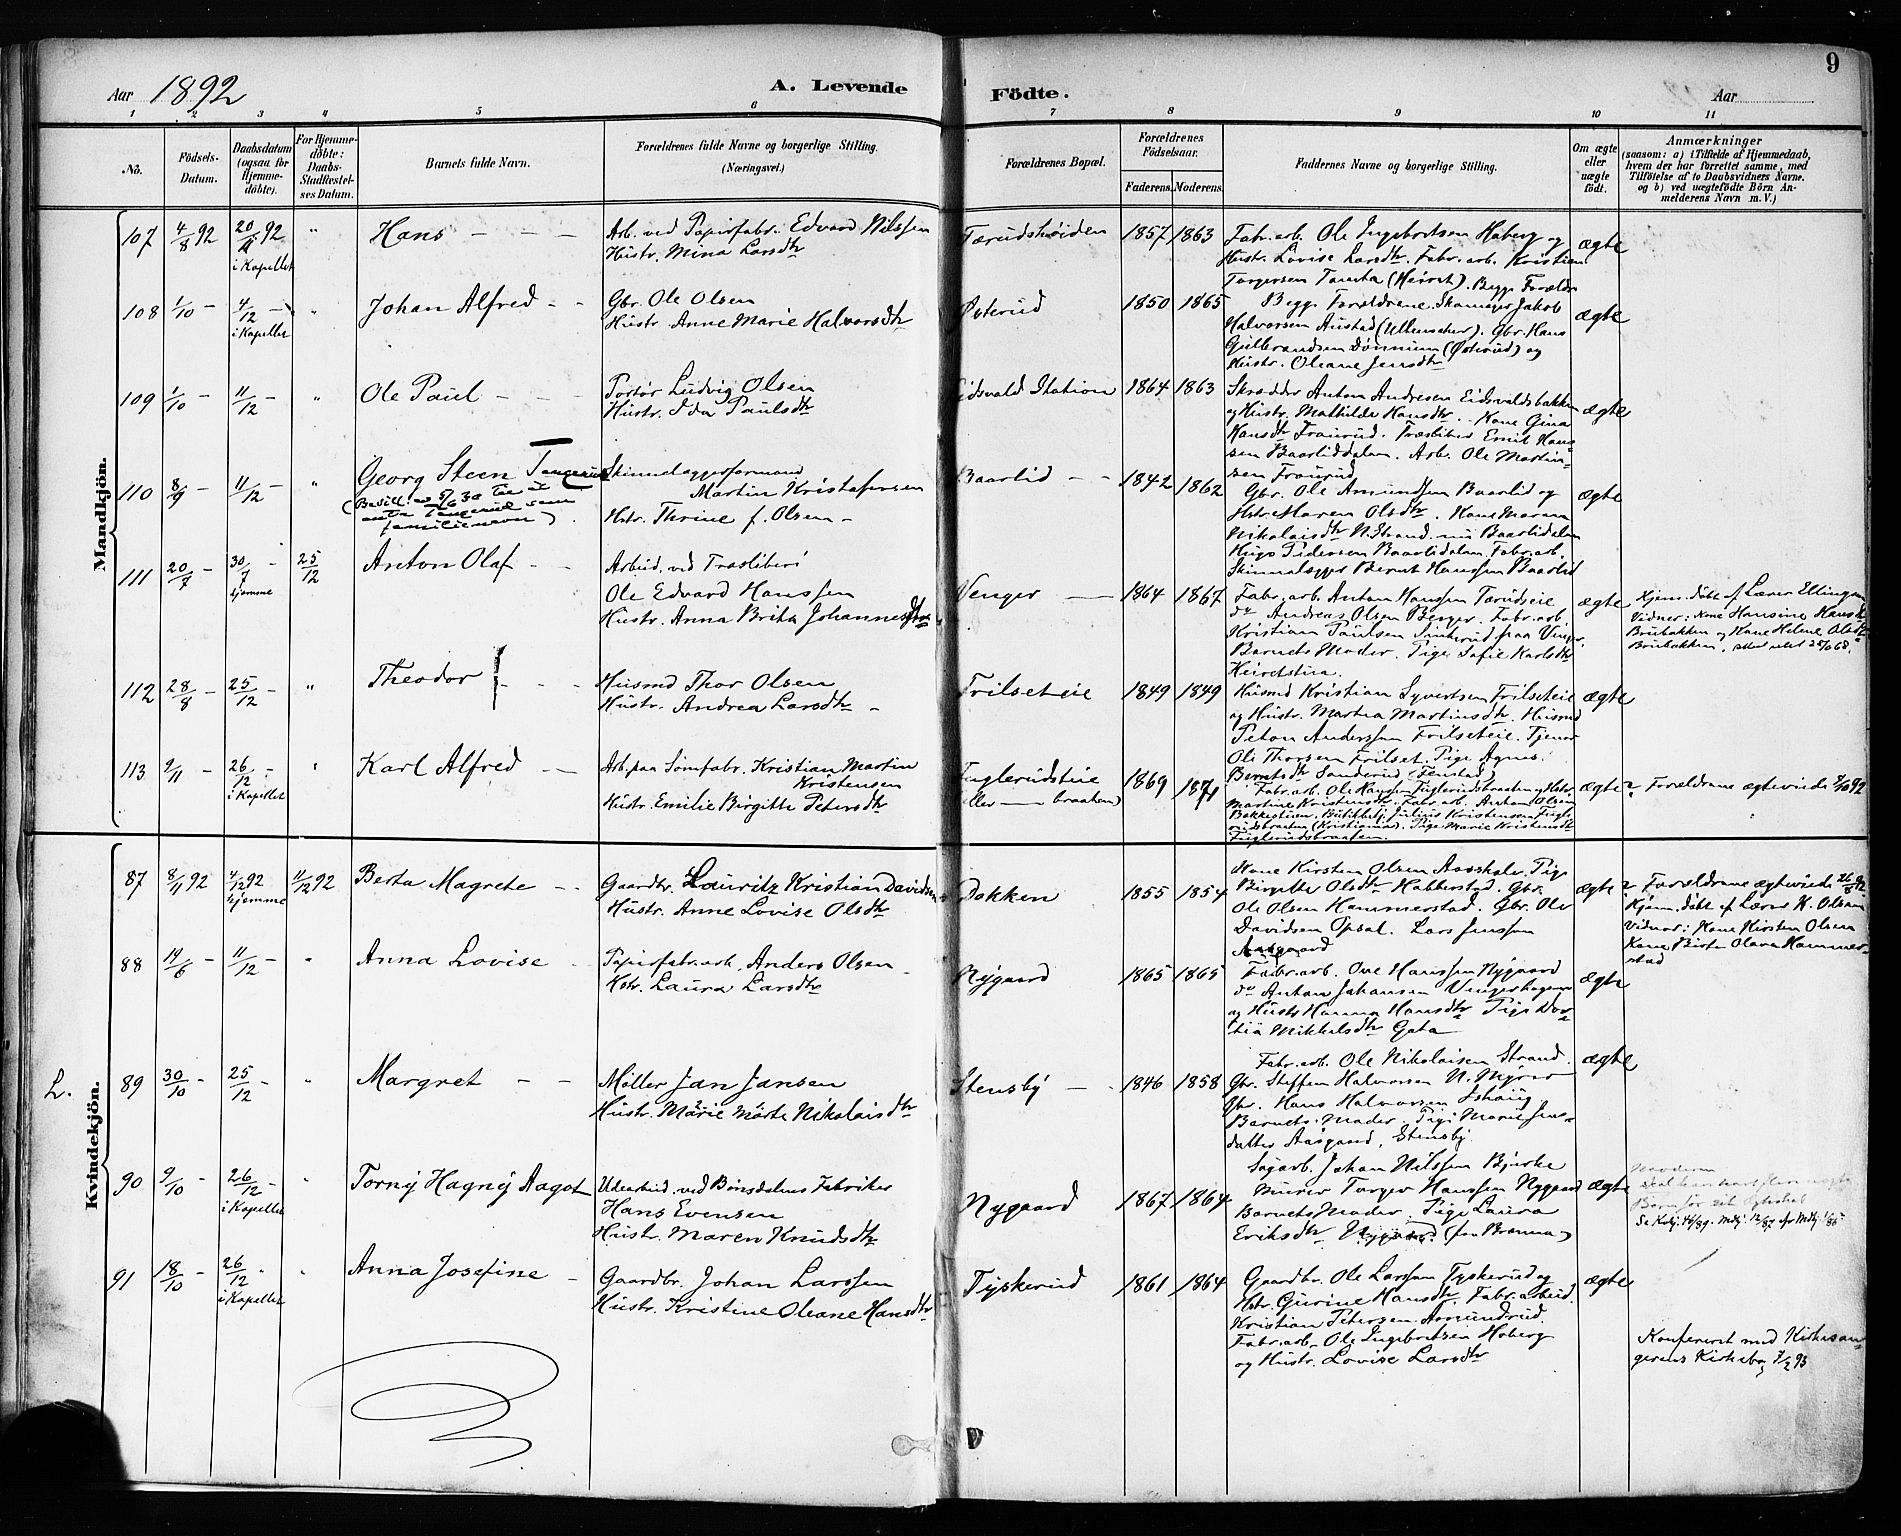 9
Aar 1892
A. Levende
Födte.
Aar
1 2 3 4 5 6 7 8 9 10 11
No.
Födsels-
Datum.
Daabsdatum
(ogsaa for
Hjemme-
döbte).
For Hjemme-
döbte:
Daabs-
Stadfæstel-
ses Datum.
Barnets fulde Navn.
Forældrenes fulde Navne og borgerlige Stilling.
(Næringsvei.)
Forældrenes Bopæl.
Forældrenes
Födselsaar.
Faderens.
Moderens.
Faddernes Navne og borgerlige Stilling.
Om ægte
eller
uægte
födt.
Anmærkninger
(saasom: a) i Tilfælde af Hjemmedaab,
hvem der har forrettet samme, med
Tilföielse af to Daabsvidners Navne,
og b) ved uægtefödte Börn An-
melderens Navn m. V.)
Mandkjön.
107 4/8 92 20/11 92 i Kapellet " Hans
Arb. ved Papirfabr. Edvard Nilssen
Hustr. Mina Larsdtr
Tærudshøiden 1857 1863
Fabr.arb. Ole Ingebretsen Hoberg og
Hustr. Lovise Larsdtr. Fabr.arb. Kristian
Torgersen Tomta (Heiret). Begge Forældr
ægte
108 1/10 - 4/12 - i Kapellet " Johan Alfred
Gbr. Ole Olsen
Hustr. Anne Marie Halvorsdtr
Østerud 1850 1865
Begge Forældrene. Skomager Jakob
Halvorsen Austad (Ullensaker). Gbr. Hans
Gulbrandsen Dönnum (Østerud) og
Hustr. Oleane Jensdtr
ægte
109 1/10 - 11/12 - " Ole Paul
Portör Ludvig Olsen
Hustr. Ida Paulsdtr
Eidsvold Station 1864 1863
Skrædder Anton Andresen Eidsvoldsbakken
og Hustr. Mathilde Hansdtr. Kone Gina
Hansdtr Fraurud. Træsliber Emil Hans-
sen Baarliddalen. Arb. Ole Martin-
sen Fraurud
ægte
110 8/9 - 11/12 - " Georg Steen Tangerud
(Bevill. av 5/6 30 til å
anta Tangerud som
familienavn)
Skinnelæggerformand
Martin Kristofersen
Hstr. Thrine f. Olsen
Baarlid 1842 1862
Gbr. Ole Amundsen Baarlid og
Hstr. Maren Olsdtr. Kone Maren
Nikolaisdtr N. Strand. nu Baarlidalen
Hugo Pedersen Baarlidalen. Fabr.arb.
Skinnelægger Bernt Hanssen Baarlid
ægte
111 20/7 - 30/7 - hjemme 25/12 Anton Olaf
Arbeid. ved Træsliberi
Ole Edvard Hanssen
Hustr. Anna Brita Johannesdtr
Venger 1864 1867
Fabr.arb. Anton Hanssen Tærudseie
do Andreas Olsen Berger. Fabr.arb.
Kristian Paulsen Finkerud paa Venger.
Barnets Moder. Pige Sofie Karlsdtr
Heiretstua.
ægte
Hjem. döbt af Lærer Ellingsen
Vidner: Kone Hansine Hansdtr
Brubakken og Kone Helene Olsdtr
Brubakken.
112 28/8 - 25/12 - " Theodor
Husmd Thor Olsen
Hustr. Andrea Larsdtr
Frilseteie 1849 1849
Husmd Kristian Syvertsen Frilseteie
og Hustr. Martea Martinsdtr. Husmd
Peton Anderssen Frilseteie. Tjener
Ole Thorsen Frilset. Pige Agnes
Berntsdtr Sanderud (Fenstad)
ægte
113 9/11 - 26/12 - i Kapellet " Karl Alfred
Arb. paa Sømfabr. Kristian Martin
Kristensen
Hustr. Emilie Birgitte Petersdtr
Fuglerudseie
(eller — braaten) 1869 1871
Fabr.arb. Ole Hansen Fuglerudsbraaten og Hstr.
Martine Kristensdtr. Fabr.arb. Anton Olsen
Bakkestuen. Butikbetj. Julius Kristensen Fugle-
rudsbraaten (Kristiania). Pige Marie Kristensdtr
Fuglerudsbraaten.
ægte
? Forældrene ægteviede 2/10 92
Kvindekjön.
87 8/11 92 4/12 92 hjemme 11/12 92 Berta Magrete
Gaardbr. Lauritz Kristian Davidsen
Hustr. Anne Lovise Olsdtr
Dokken 1855 1854
Kone Kirsten Olsen Aasskole. Pige
Birgitte Olsdtr Habberstad. Gbr.
Ole Olsen Hammerstad. Gbr. Ole
Davidsen Opsal. Lars Jenssen
Aasgaard
ægte
? Forældrene ægteviede 26/8 92
Hjem. döbt af Lærer K. Olsen
Vidner: Kone Kirsten Olsen
Kone Birte Olava Hammer-
stad
88 19/6 - 11/12 - " Anna Lovise
Papirfabr.arb. Anders Olsen
Hstr. Laura Larsdtr
Nygaard 1865 1865
Fabr.arb. Ove Hanssen Nygaard
do Anton Johansen Vengerhagen
og Hustr. Hanna Hansdtr Pige Dor-
thea Mikkelsdtr Gata
ægte
L. 89 30/10 - 25/12 - " Margret
Møller Jan Jansen
Hustr. Marie Märte Nikolaisdtr
Stensby 1846 1858
Fabr.arb. Ole Nikolaisen Strand.
Gbr. Steffen Halvorsen N. Myrer
Gbr. Hans Halvorsen Ishaug
Barnets Moder. Pige Marie Jens-
datter Aasgaard, Stensby.
ægte
90 9/10 - 26/12 - i Kapellet " Torny Hagny Aagot
Udearbeid. ved Bönsdalens Fabriker
Hans Evensen
Hustr. Maren Knudsdtr
Nygaard 1867 1864
Sagarb. Johan Nilssen Bjerke
Murer Torger Hanssen Nygaard
Barnets Moder. Pige Laura
Eriksdtr Nygaard (fra Brænna)
ægte
Moderen
skal have havt flere uægte
Børn før sit Ægteskab
91 18/10 - 26/12 " i Kapellet " Anna Josefine
Gaardbr. Johan Larssen
Hustr. Kristine Oleane Hansdtr
Tyskerud 1861 1864
Gaardbr. Ole Larssen Tyskerud og
Hstr. Gurine Hansdtr. Fabr.arbeid.
Kristian Petersen Amundrud.
Fabr.arb. Ole Ingebretsen Hoberg
og Hustr. Lovise Larsdtr
ægte
Konfereret med Kirkesan-
gerens Kirkebog 7/2 93